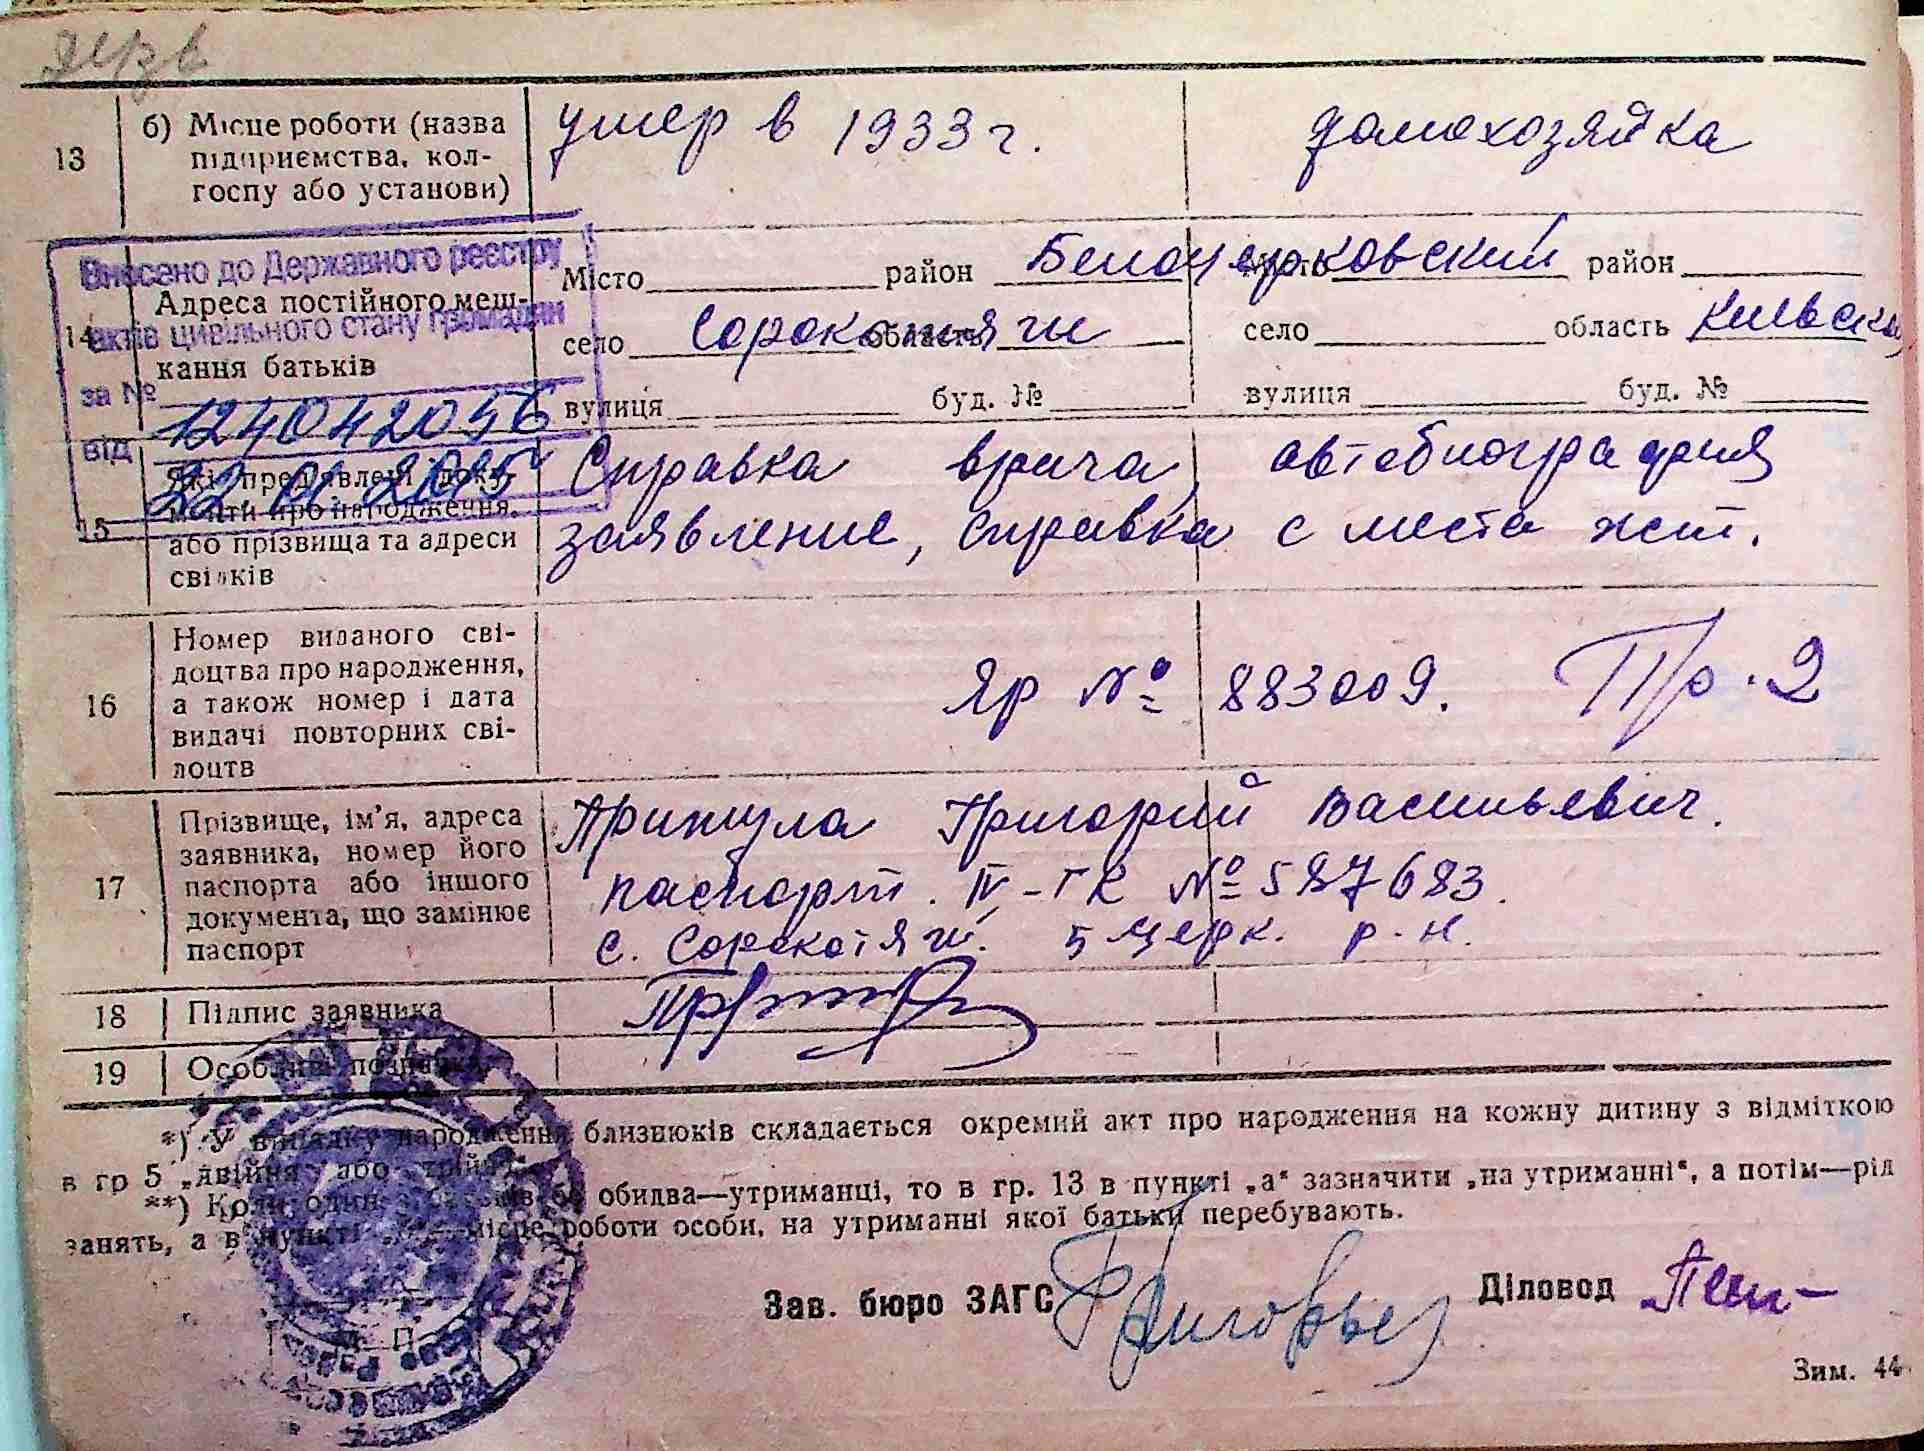 13 б) Місце роботи (назва підприємства, кол-госпу або установи)
умер в 1933 г.
домохозяйка
Внесено до Державного реєстру
актів цивільного стану громадян
за № 124042056
від 22 2015
14 Адреса постійного меш-
кання батьків
Місто район Белоцерковский район
село Сорокотяги область село область Киевская
вулиця буд. № вулиця буд. №
15 Які пред'явлені доку-
менти про народження,
або прізвища та адреси
свідків
Справка врача, автобиография
заявление, справка с места жит.
16 Номер виданого сві-
доцтва про народження,
а також номер і дата
видачі повторних сві-
доцтв
Яр № 883009. Пр. 2
17 Прізвище, ім'я, адреса
заявника, номер його
паспорта або іншого
документа, що замінює
паспорт
Григорий Васильевич.
паспорт. IV-ГК № 587683.
с. Сорокотяги. Б Церк. р-н.
18 Підпис заявника
19 Особливі позначки
*) У випадку народження близнюків складається окремий акт про народження на кожну дитину з відміткою
в гр 5 „двійня" або „трійня".
**) Коли один з батьків або обидва—утриманці, то в гр. 13 в пункті „а" зазначити „на утриманні", а потім—рід
занять, а в пункті місце роботи особи, на утриманні якої батьки перебувають.
Зав. бюро ЗАГС Діловод
М. П.
Зим. 44